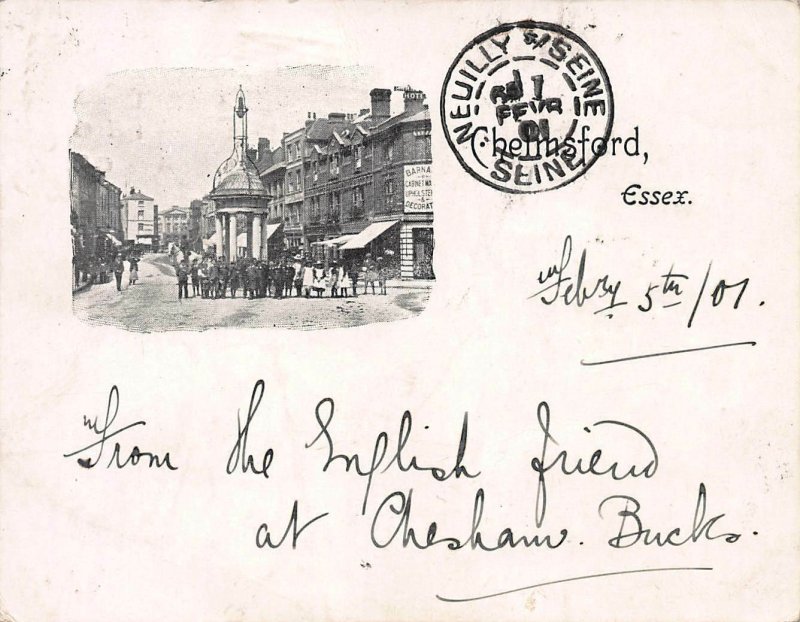 HOTE
BARNA
&
CABINET MA
UPHOLSTER
&
DECORAT
NEUILLY S/SEINE
7
FEVR
01
SEINE
Chelmsford,
Essex.
Febry 5th/01.
From the English friend
at Chesham. Bucks.